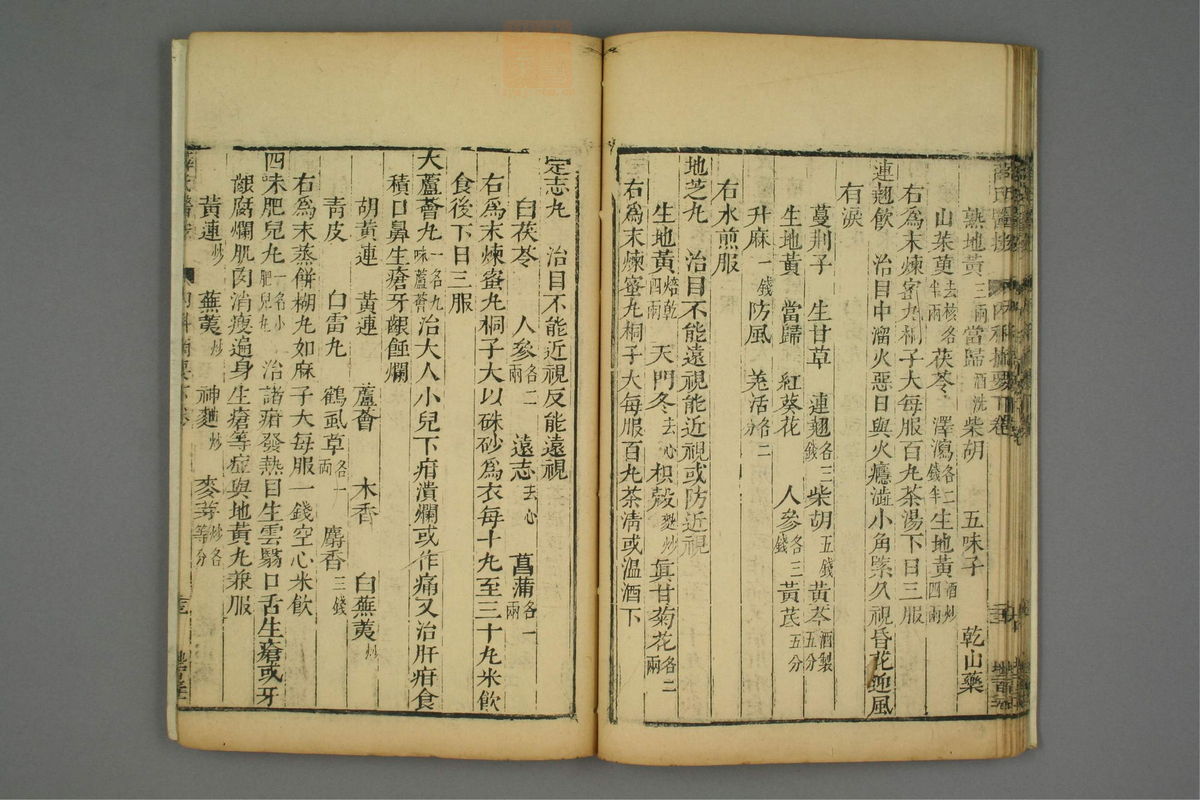 熟地黃三兩當歸酒洗柴胡 五味子 乾山藥
山茱萸去核各半兩茯苓 澤瀉各二錢半生地黃酒炒四兩
右爲末煉蜜丸桐子大每服百丸茶湯下日三服
連翹飲 治目中溜火惡日與火癮澁小角緊久視昏花迎風
有淚
蔓荆子 生甘草 連翹各三錢柴胡五錢黃芩酒製五分
生地黃 當歸 紅葵花 人參各三錢黃芪五分
升麻一錢防風 羌活各二分
右水煎服
地芝丸 治目不能遠視能近視或防近視
生地黃焙乾四兩 天門冬去心枳殼麩炒眞甘菊花各二兩
右爲末煉蜜丸桐子大每服百丸茶清或温酒下
定志丸 治目不能近視反能遠視
白茯苓 人參各二兩 遠志去心 菖蒲各一兩
右爲末煉蜜丸桐子大以硃砂爲衣每十丸至三十丸米飲
食後下日三服
大蘆薈丸一名九味蘆薈治大人小兒下疳潰爛或作痛又治肝疳食
積口鼻生瘡牙齦蝕爛
胡黃連 黃連 蘆薈 木香 白蕪荑炒
青皮 白雷丸 鶴虱草各一兩 麝香三錢
右爲末蒸餅糊丸如麻子大每服一錢空心米飲
四味肥兒丸一名小肥兒丸 治諸疳發熱目生雲翳口舌生瘡或牙
齦腐爛肌肉消瘦遍身生瘡等症與地黃丸兼服
黃連炒 蕪荑炒 神麯炒 麥芽炒各等分